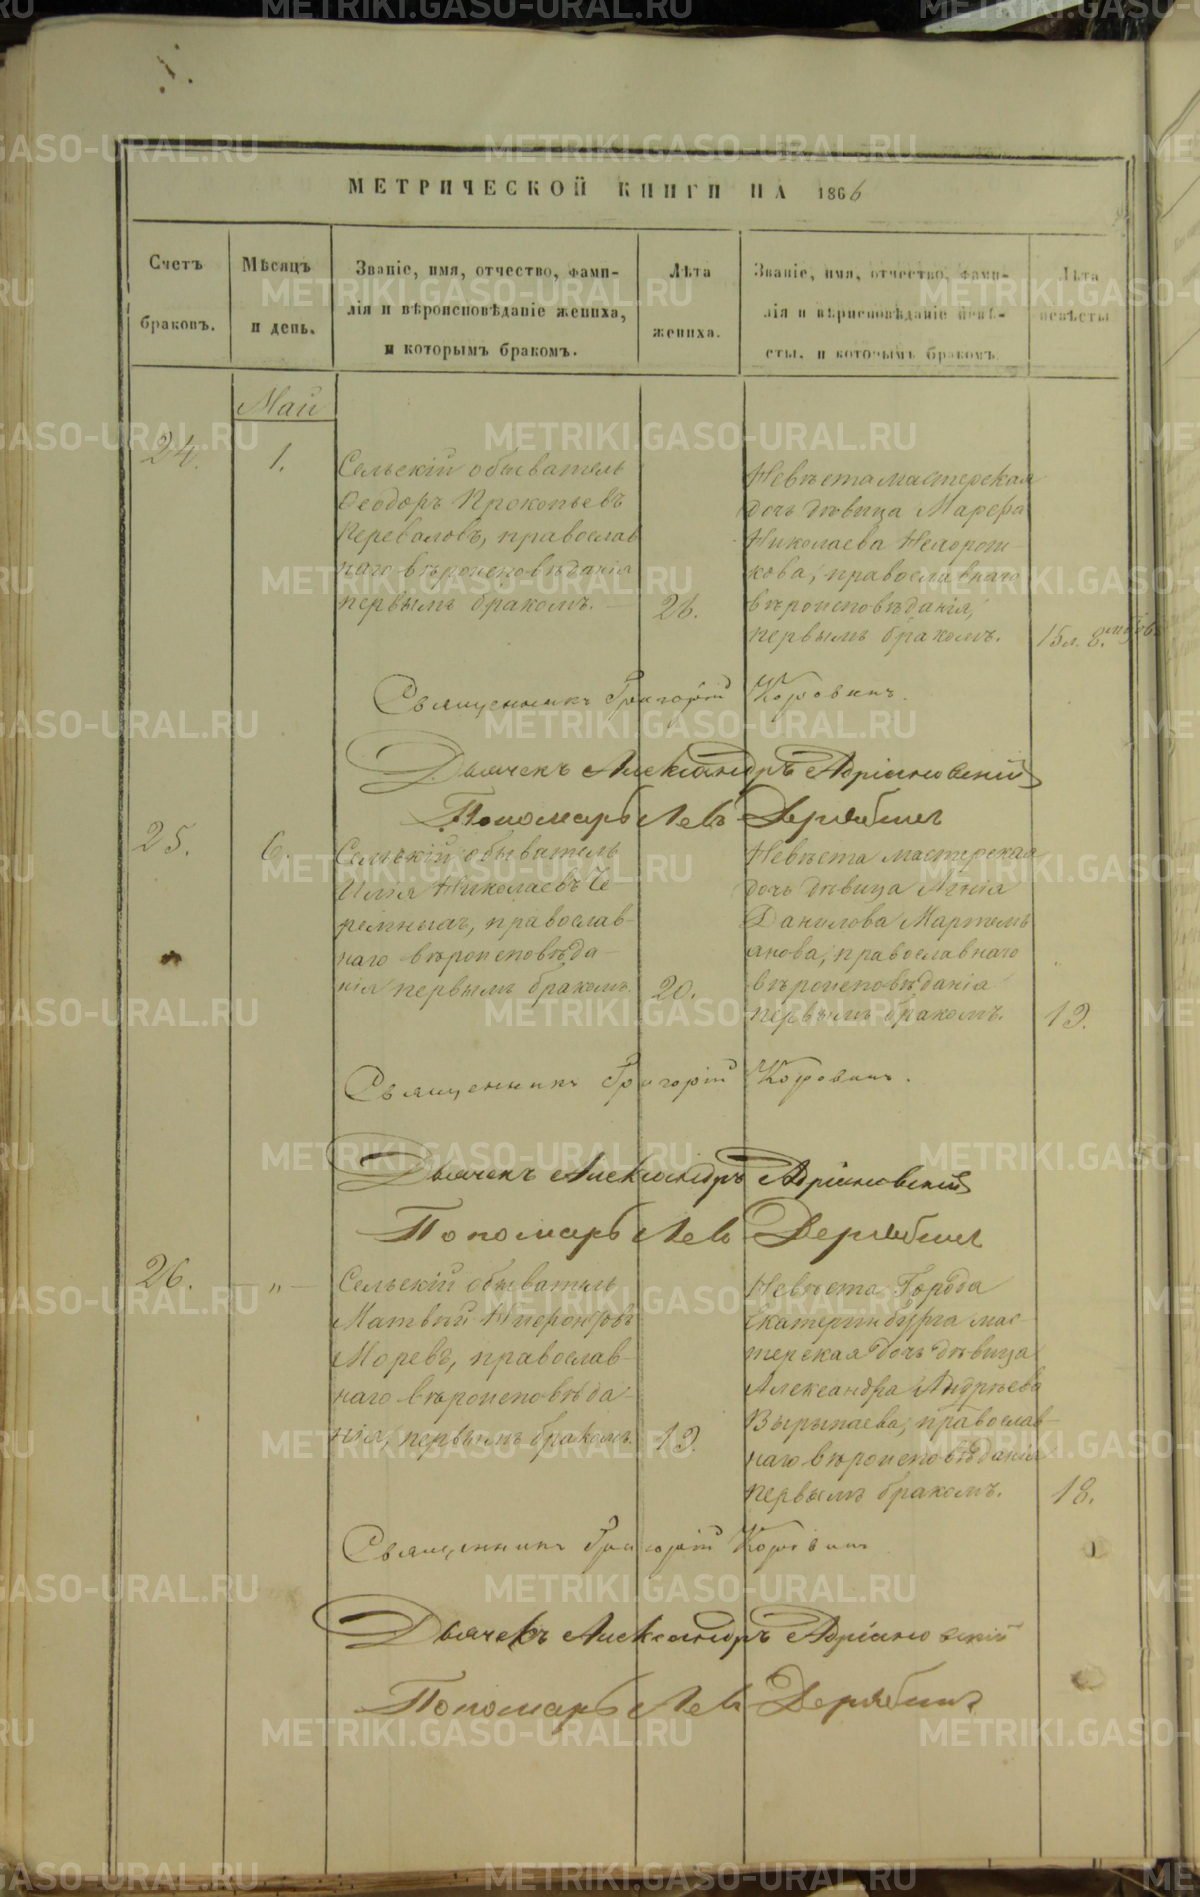 МЕТРИЧЕСКОЙ КНИГИ НА 1866
Счетъ браковъ.
Мѣсяцъ и день.
Званіе, имя, отчество, фами-
лія и вѣроисповѣданіе жениха,
и которымъ бракомъ.
Лѣта
жениха.
Званіе, имя, отчество, фами-
лія и вѣрисповѣданіе невѣ-
сты, и которымъ бракомъ
Лѣта
невѣсты
Май
24.
1.
Сельскій обыватель
Ѳеодоръ Прокопьевъ
Переваловъ, православ
наго вѣроисповѣданія
первымъ бракомъ.
26.
Невѣста мастерская
дочь дѣвица Марѳа
Николаева
православнаго
вѣроисповѣданія,
первымъ бракомъ.
15 л. 8.
Священникъ Григорій Коровинъ.
Дьячекъ Александръ Адріановскій
Пономарь Левъ Дерябинъ
25.
6.
Сельскій обыватель
Илія Николаевъ Че-
ремныхъ, православ-
наго вѣроисповѣда-
нія первымъ бракомъ
20.
Невѣста мастерская
дочь дѣвица Агнія
Данилова Мартемь
янова, православнаго
вѣроисповѣданія
первымъ бракомъ.
19.
Священникъ Григорій Коровинъ.
Дьячекъ Александръ Адріановскій
Пономарь Левъ Дерябинъ
26.
— „ —
Сельскій обыватель
Матвѣй
Моревъ, православ-
наго вѣроисповѣда-
нія, первымъ бракомъ.
19.
Невѣста Города
Екатеринбурга мас-
терская дочь дѣвица
Александра Андрѣева
Вырыпаева, православ-
наго вѣроисповѣданія
первымъ бракомъ.
18.
Священникъ Григорій Коровинъ
Дьячекъ Александръ Адріановскій
Пономарь Левъ Дерябинъ
METRIKI.GASO-URAL.RU